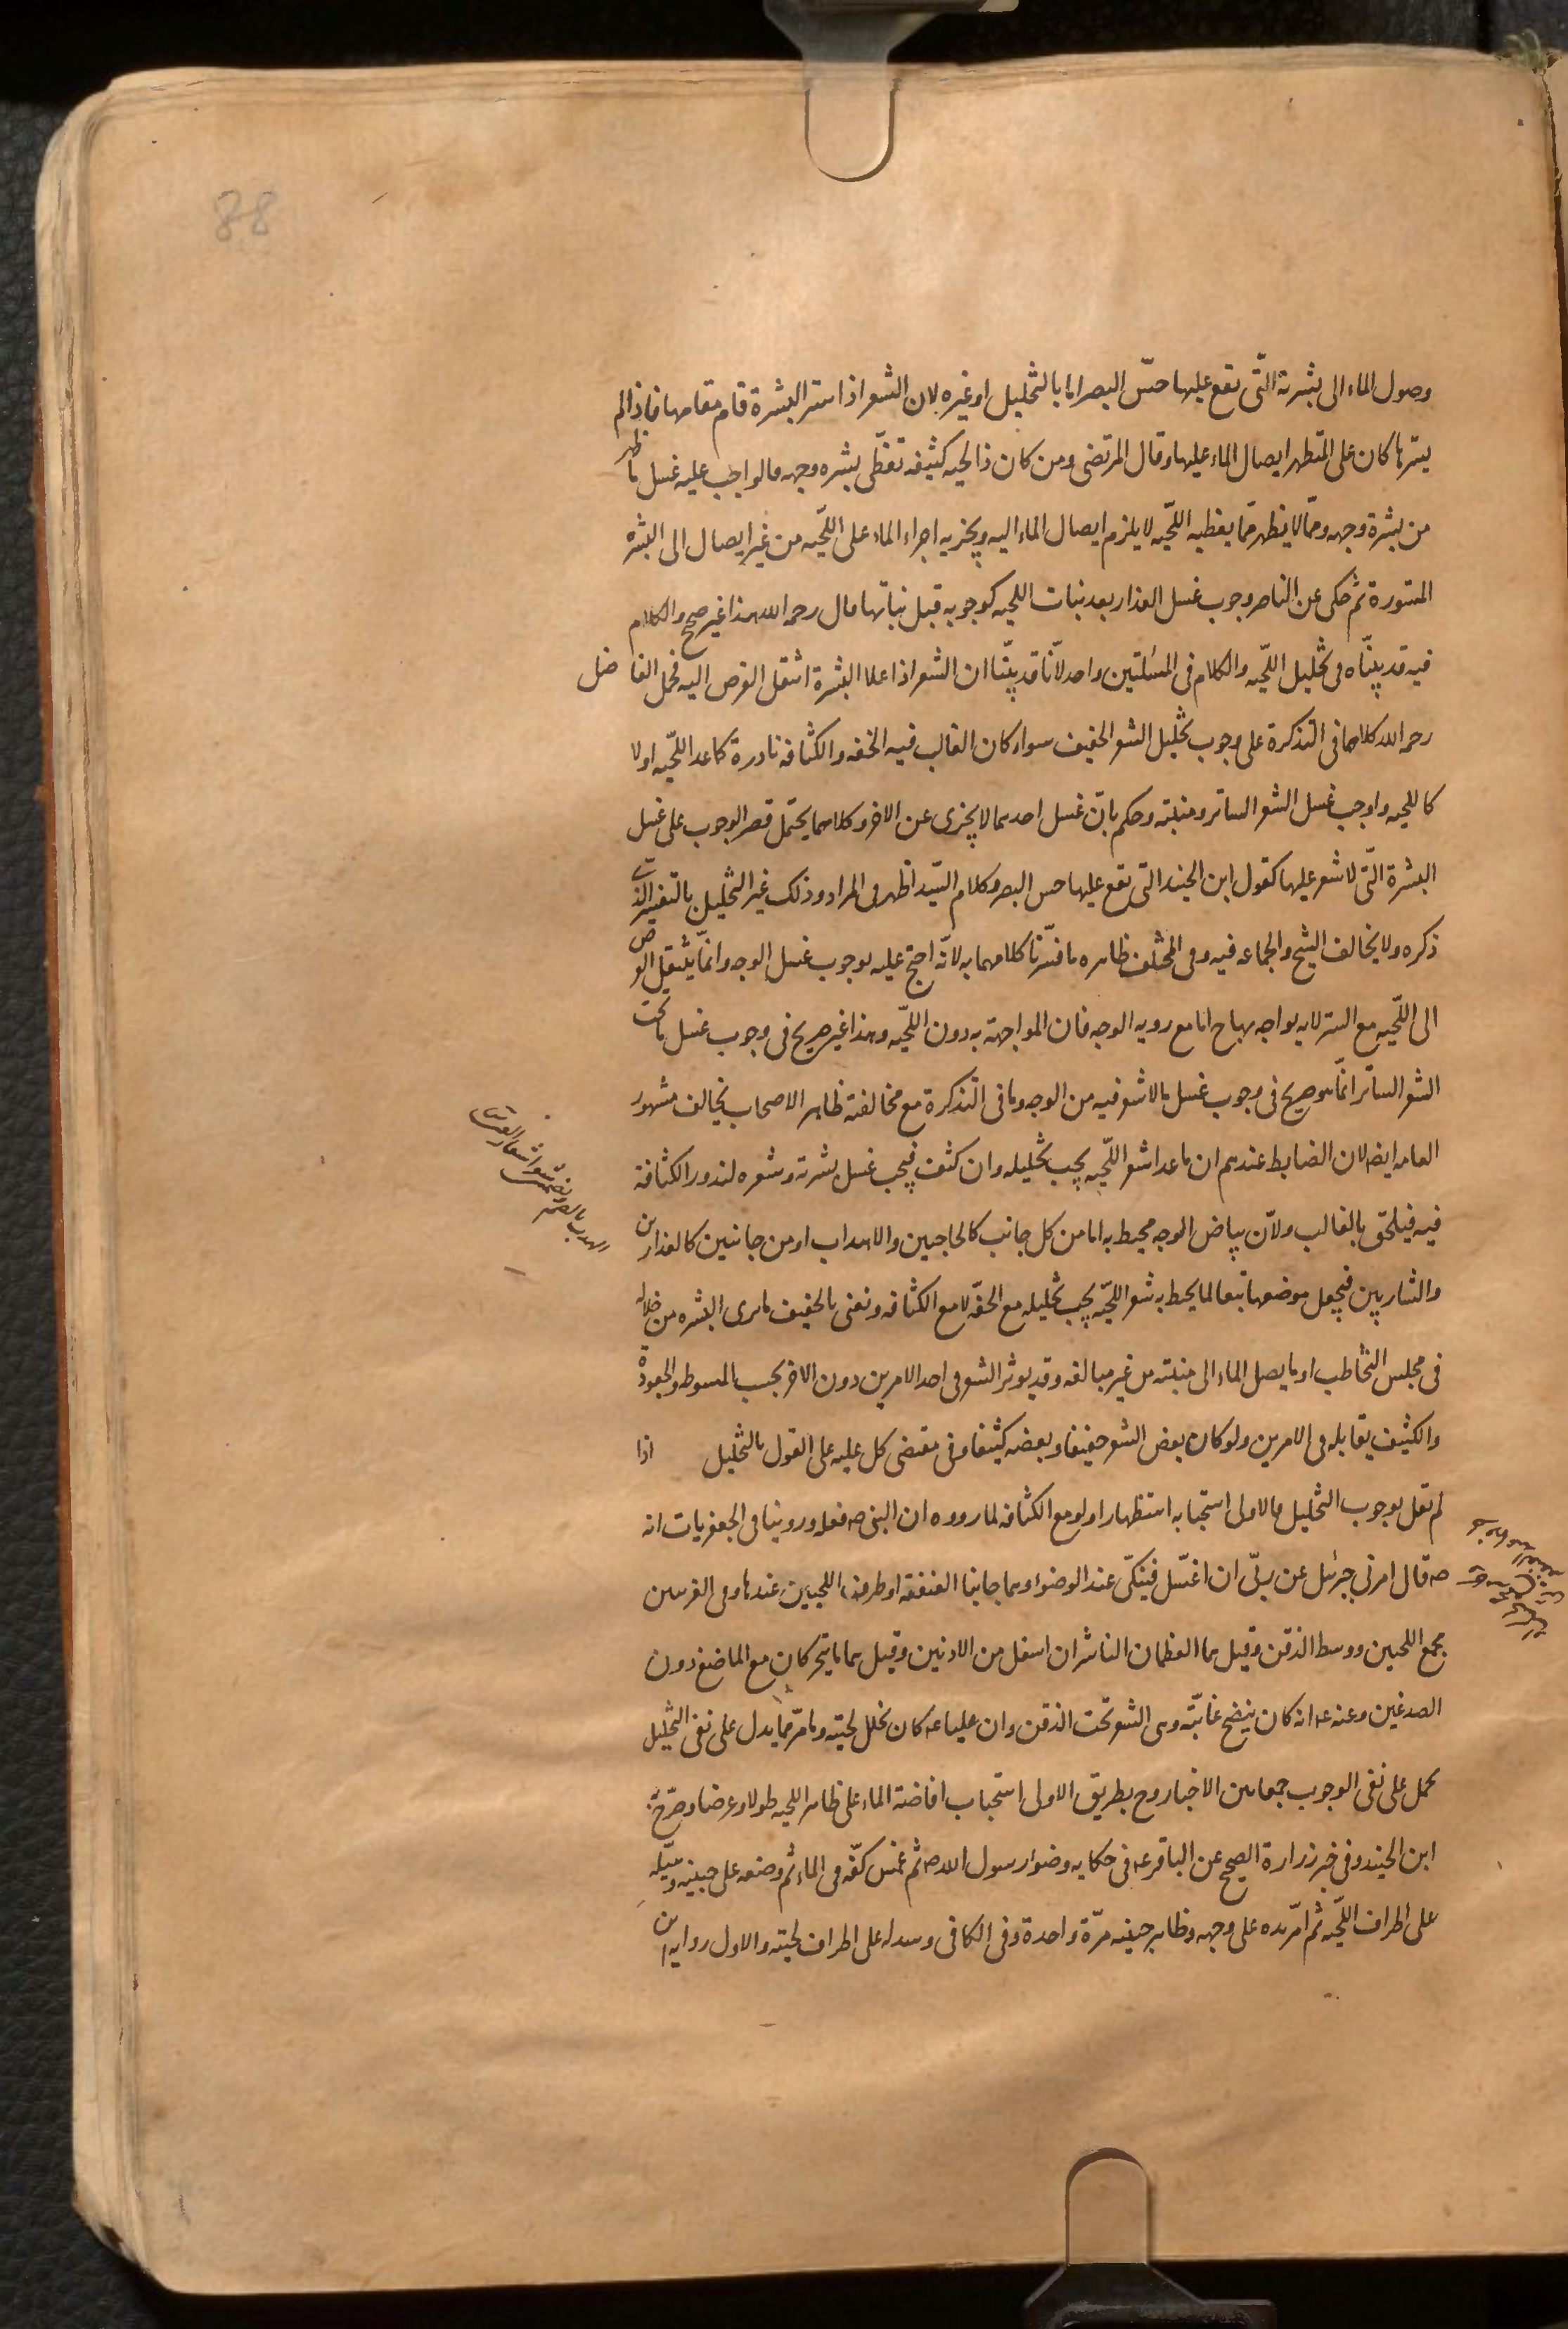 88
وصول الماء الى بشرته التّى تقع عليها حسّ البصر اما بالتخليل او غيره لان الشعر اذا ستر البشرة قام مقامها فاذا لم
يسترها كان على المتطهر ايصال الماء عليها وقال المرتضى ومن كان ذا لحيه كثيفه تغطّى بشره وجهه فالواجب عليه غسل ما ظهر
من بشرة وجهه وممّا لا يظهر ممّا يغطيه اللّحيه لا يلزم ايصال الماء اليه ويجزيه اجراء الماء على اللّحيه من غير ايصال الى البشره
المستورة ثم حكى عن الناصر وجوب غسل العذار بعد نبات اللحيه كوجوبه قبل نباتها قال رحمه الله هذا غير صحيح والكلام
فيه قد بيّنّاه فى تخليل اللّحيه والكلام فى المسئلتين واحد لانّا قد بيّنّا ان الشعر اذا علا البشرة انتقل الفرض اليه فحمل الفاضل
رحمه الله كلامهما فى التذكرة على وجوب تخليل الشعر الخفيف سواء كان الغالب فيه الخفه والكثافه نادرة كما عدا اللّحيه اولا
كاللحيه واوجب غسل الشعر الساتر ومنبته وحكم بانّ غسل احدهما لا يجزى عن الاخر وكلامهما يحتمل قصر الوجوب على غسل
البشرة التّى لا شعر عليها كقول ابن الجنيد التى تقع عليها حس البصر وكلام السّيد اظهر فى المراد وذلك غير التخليل بالتفسير الذى
ذكره ولا يخالف الشيخ والجماعه فيه وفى المختلف ظاهره ما فسّرنا كلامهما به لانّه احتج عليه بوجوب غسل الوجه وانمّا ينتقل الفرض
الى اللّحيه مع الستر لانه يواجه بها ح اما مع رويه الوجه فان المواجهة به دون اللّحيه وهذا غير صريح فى وجوب غسل ما تحت
الشعر الساتر انمّا هو صريح فى وجوب غسل ما لا شعر فيه من الوجه وما فى التذكرة مع مخالفته ظاهر الاصحاب يخالف مشهور
العامه ايضا لان الضابط عندهم ان ما عدا شعر اللّحيه يجب تخليله وان كثف فيجب غسل بشرته وشعره لندور الكثافة
فيه فيلحق بالغالب ولانّ بياض الوجه محيط به اما من كل جانب كالحاجبين والاهداب او من جانبين كالعذارين
والشاربين فيجعل موضعها تبعا لما يحيط به شعر اللّحيه يجب تخليله مع الخفّه لا مع الكثافه ونعنى بالخفيف ما يرى البشره من خلاله
فى مجلس التخاطب او ما يصل الماء الى منبته من غير مبالغه وقد يوثر الشعر فى احد الامرين دون الاخر بحسب السبوطه والجعودة
والكثيف يقابله فى الامرين ولو كان بعض الشعر خفيفا وبعضه كثيفا وفى مقتضى كل عليه على القول بالتخليل اذا
لم نقل بوجوب التخليل فالاولى استحبابه استظهارا ولو مع الكثافه لما رووه ان النبى ص فعله وروينا فى الجعفريات انه
ص قال امرنى جبرئيل عن ربّى ان اغسل فنيكىّ عند الوضوء وهما جانبا العنفقه او طرفا اللحيين عندها وفى الغريبين
مجمع اللحيين ووسط الذقن وقيل هما العظمان الناشزان اسفل من الاذنين وقيل هما ما يتحركان مع الماضغ دون
الصدغين وعنه ع انه كان ينضح غابّته وهى الشعر تحت الذقن وان عليا ع كان يخلل لحيته وما مرّ مما يدل على نفى التخليل
يحمل على نفى الوجوب جمعا بين الاخبار وح بطريق الاولى استحباب افاضة الماء على ظاهر اللحيه طولا وعرضا وصرّح به
ابن الجنيد وفى خبر زرارة الصحيح عن الباقر ع فى حكايه وضوء رسول الله ص ثم غمس كفّه فى الماء ثم وضعه على جبينه وسيّله
على اطراف اللّحيه ثم امرّ يده على وجهه وظاهر جبينه مرّة واحدة وفى الكافى وسدله على اطراف لحيته والاول روايه ابن